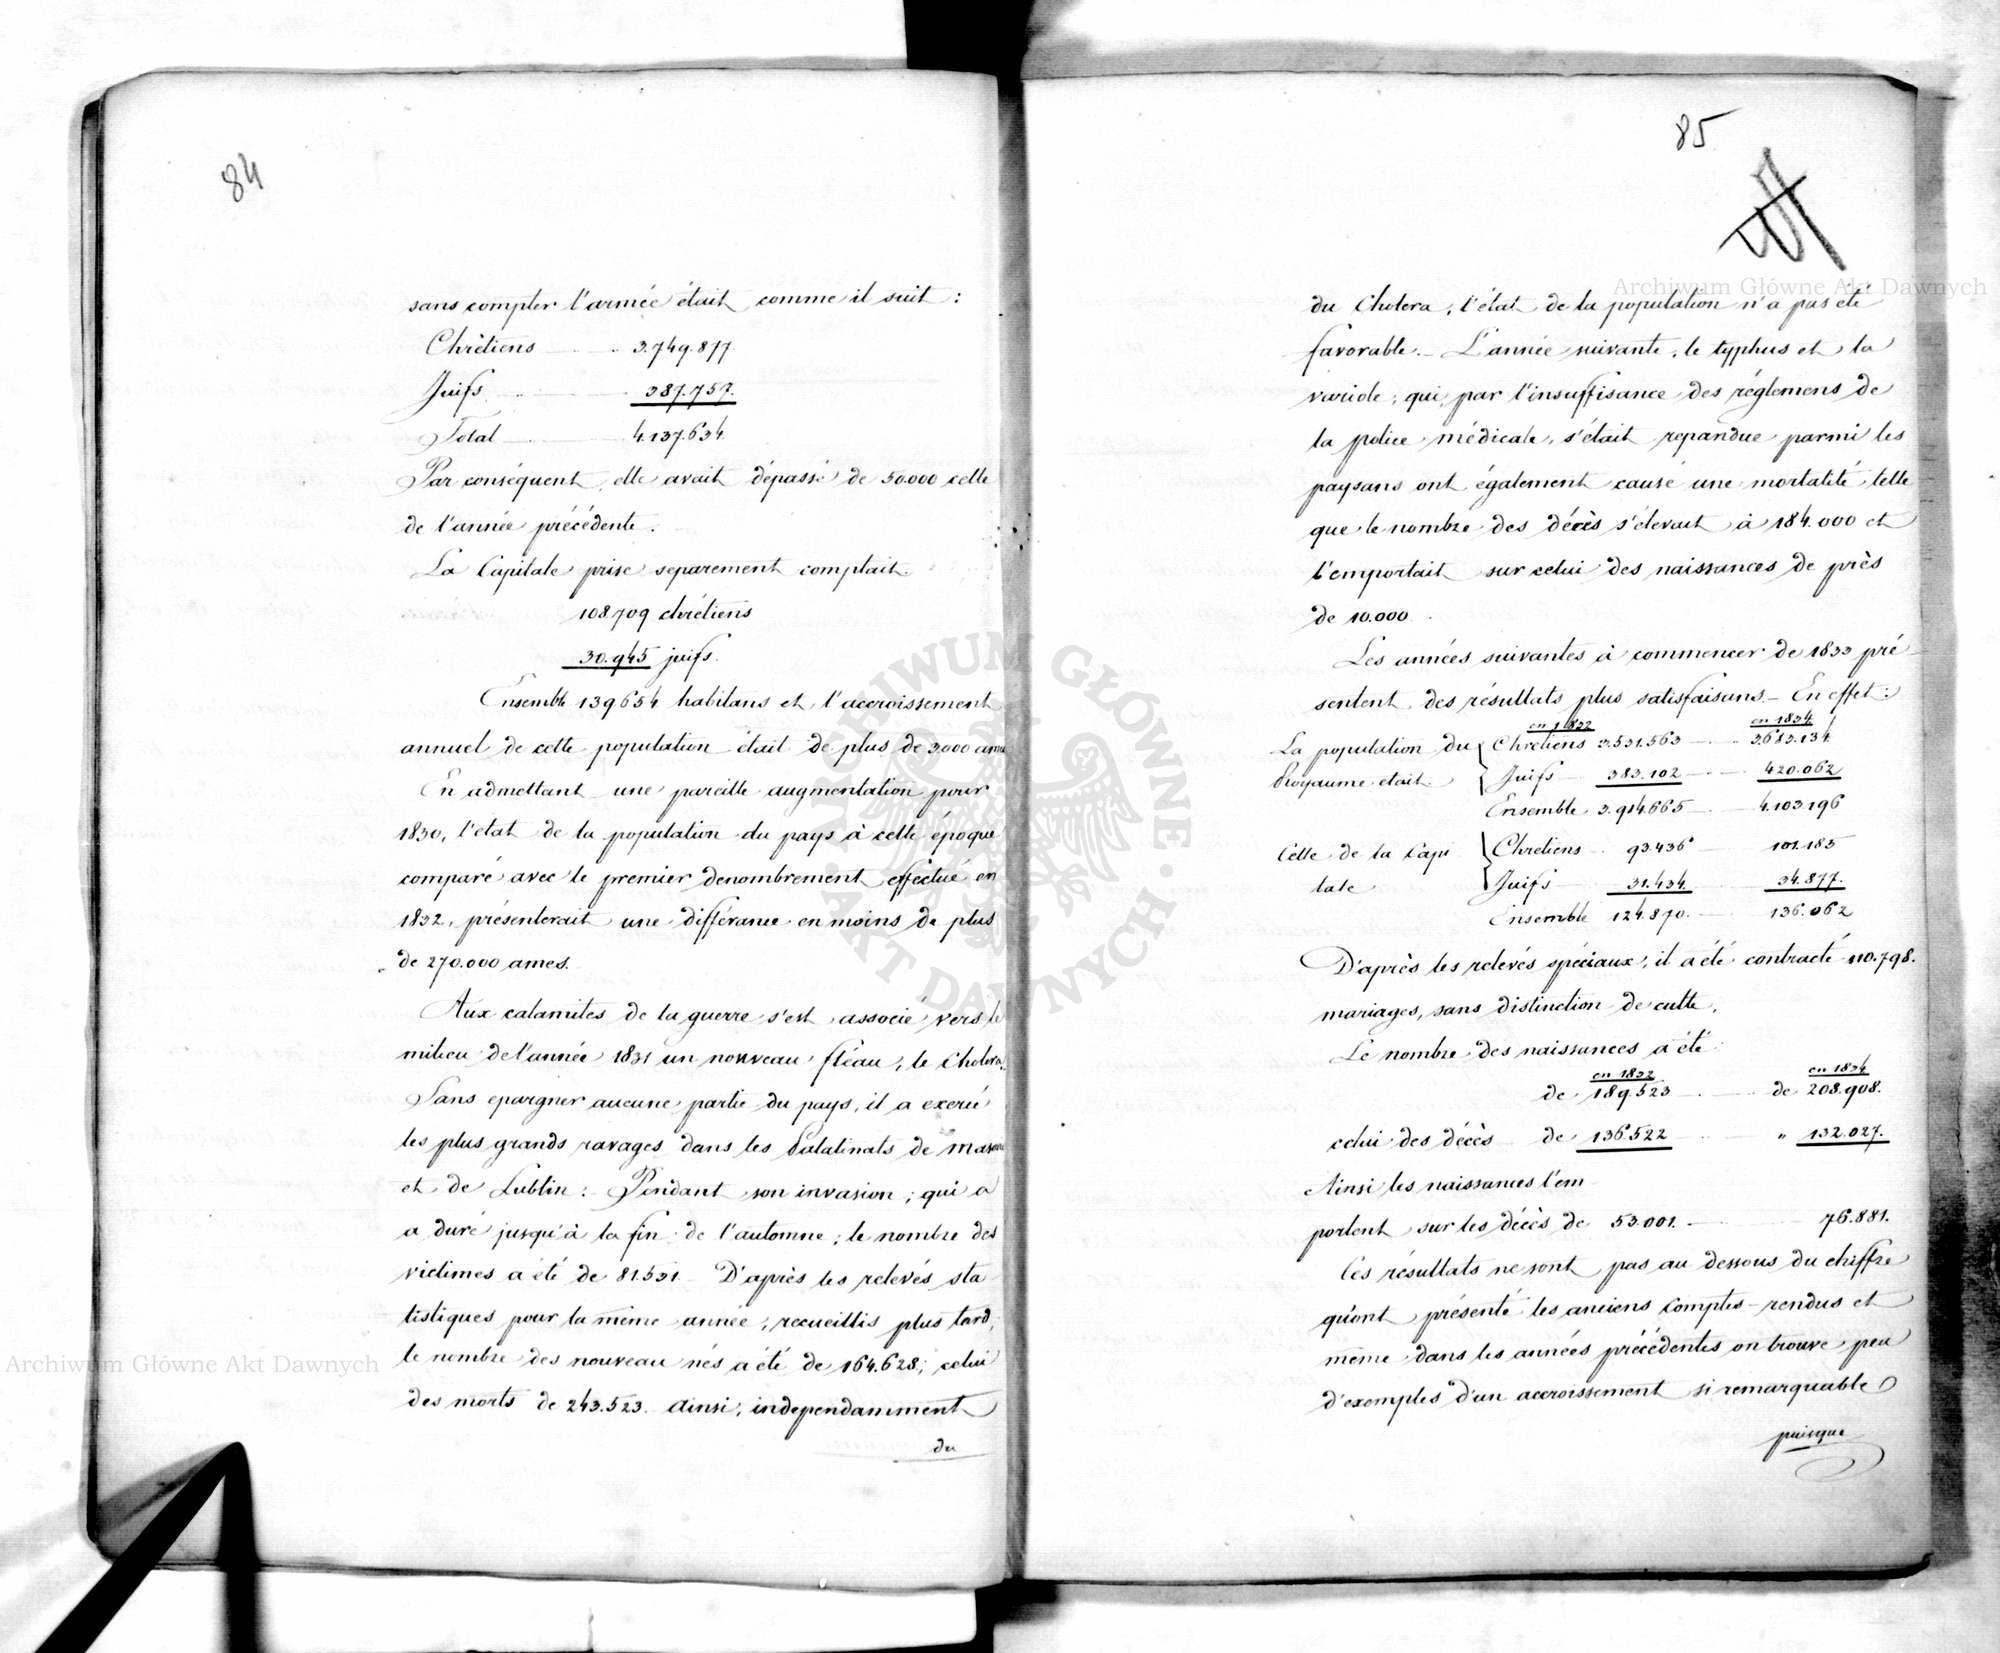 84
sans compter l'armée était comme il suit :
Chrétiens 3.749.877.
Juifs 387.757.
Total 4.137.634.
Par conséquent, elle avait dépassé de 50.000 celle
de l'année précédente.
La Capitale prise separement comptait
108.709 chrétiens
30.945 juifs.
Ensemble 139654 habitans et l'accroissement
annuel de cette population était de plus de 3000 ames
En admettant une pareille augmentation pour
1830, l'etat de la population du pays à cette époque
comparé avec le premier denombrement effectué en
1832, présenterait une différance en moins de plus
de 270.000 ames.
Aux calamités de la guerre s'est associé vers le
milieu de l'année 1831 un nouveau fléau, le Cholera.
Sans epargner aucune partie du pays, il a exercé
les plus grands ravages dans les Palatinats de
et de Lublin : Pendant son invasion, qui a
a duré jusqu'à la fin de l'automne, le nombre des
victimes a été de 81.531. D'après les relevés sta
tistiques pour la même année, recueillis plus tard,
le nombre des nouveau nés a été de 164.628; celui
des morts de 243.523. Ainsi, independamment
du
85
du Cholera, l'état de la population n'a pas été
favorable. L'année suivante, le typhus et la
variole, qui, par l'insuffisance des réglemens de
la police médicale, s'était repandue parmi les
paysans ont également causé une mortalité telle
que le nombre des décès s'élevait à 184.000 et
l'emportait sur celui des naissances de près
de 10.000.
Les années suivantes à commencer de 1833 pré
sentent des résultats plus satisfaisans. En effet :
en 1832 en 1834
La population du Chrétiens 3.531.563 3.683.134
Royaume était Juifs 383.102 420.062
Ensemble 3.914.665 4.103.196
Celle de la Capi Chrétiens 93.436 101.185
tale Juifs 31.434 34.877.
Ensemble 124.870. 136.062
D'après les relevés spéciaux, il a été contracté 110.798.
mariages, sans distinction de culte.
Le nombre des naissances a été
en 1832 en 1834
de 189.523 de 208.908.
celui des décès de 136.522 " 132.027.
Ainsi les naissances l'em
portent sur les décès de 53.001. 76.881.
Ces résultats ne sont pas au dessous du chiffre
qu'ont présenté les anciens comptes-rendus et
même dans les années précédentes on trouve peu
d'exemples d'un accroissement si remarquable
puisque
Archiwum Główne Akt Dawnych
Archiwum Główne Akt Dawnych
ARCHIWUM GŁÓWNE · AKT DAWNYCH ·